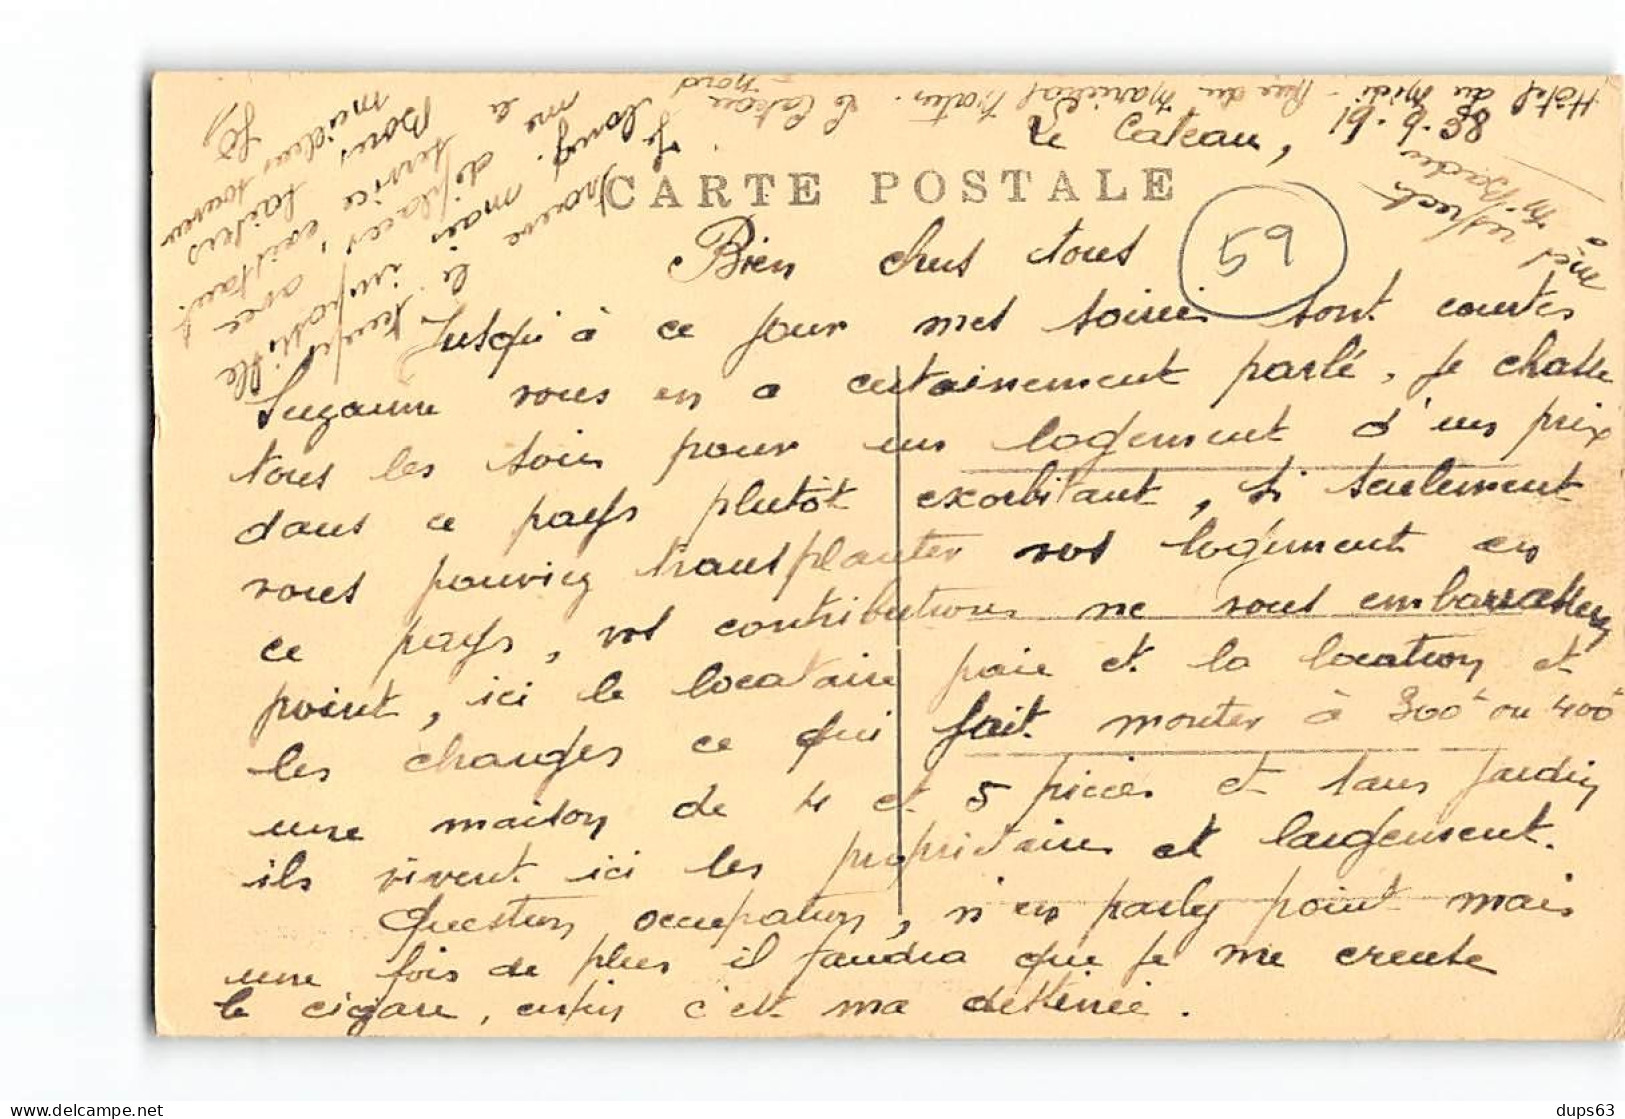 Hôtel du Midi - Rue du Maréchal Mortier. Le Cateau
Nord
Le Cateau,
CARTE POSTALE
59
Bien chers tous
Jusqu'à ce jour mes soirées sont courtes
Suzanne vous en a certainement parlé, je chasse
tous les soirs pour un logement d'un prix
dans ce pays plutôt exorbitant, si seulement
vous pouviez transplanter vos logements en
ce pays, vos contributions ne vous embarrassent
point, ici le locataire paie et la location et
les charges ce qui fait monter à 300 ou 400
une maison de 4 et 5 pièces et sans jardin
ils vivent ici les propriétaires et largement.
Question occupation, n'en parlez point mais
une fois de plus il faudra que je me creuse
le cigare, enfin c'est ma destinée.
Je trouve le temps
long. mais impossible
me déplacer, avec
le service existant.
Bons baisers
meilleur souvenir
respect
dups63